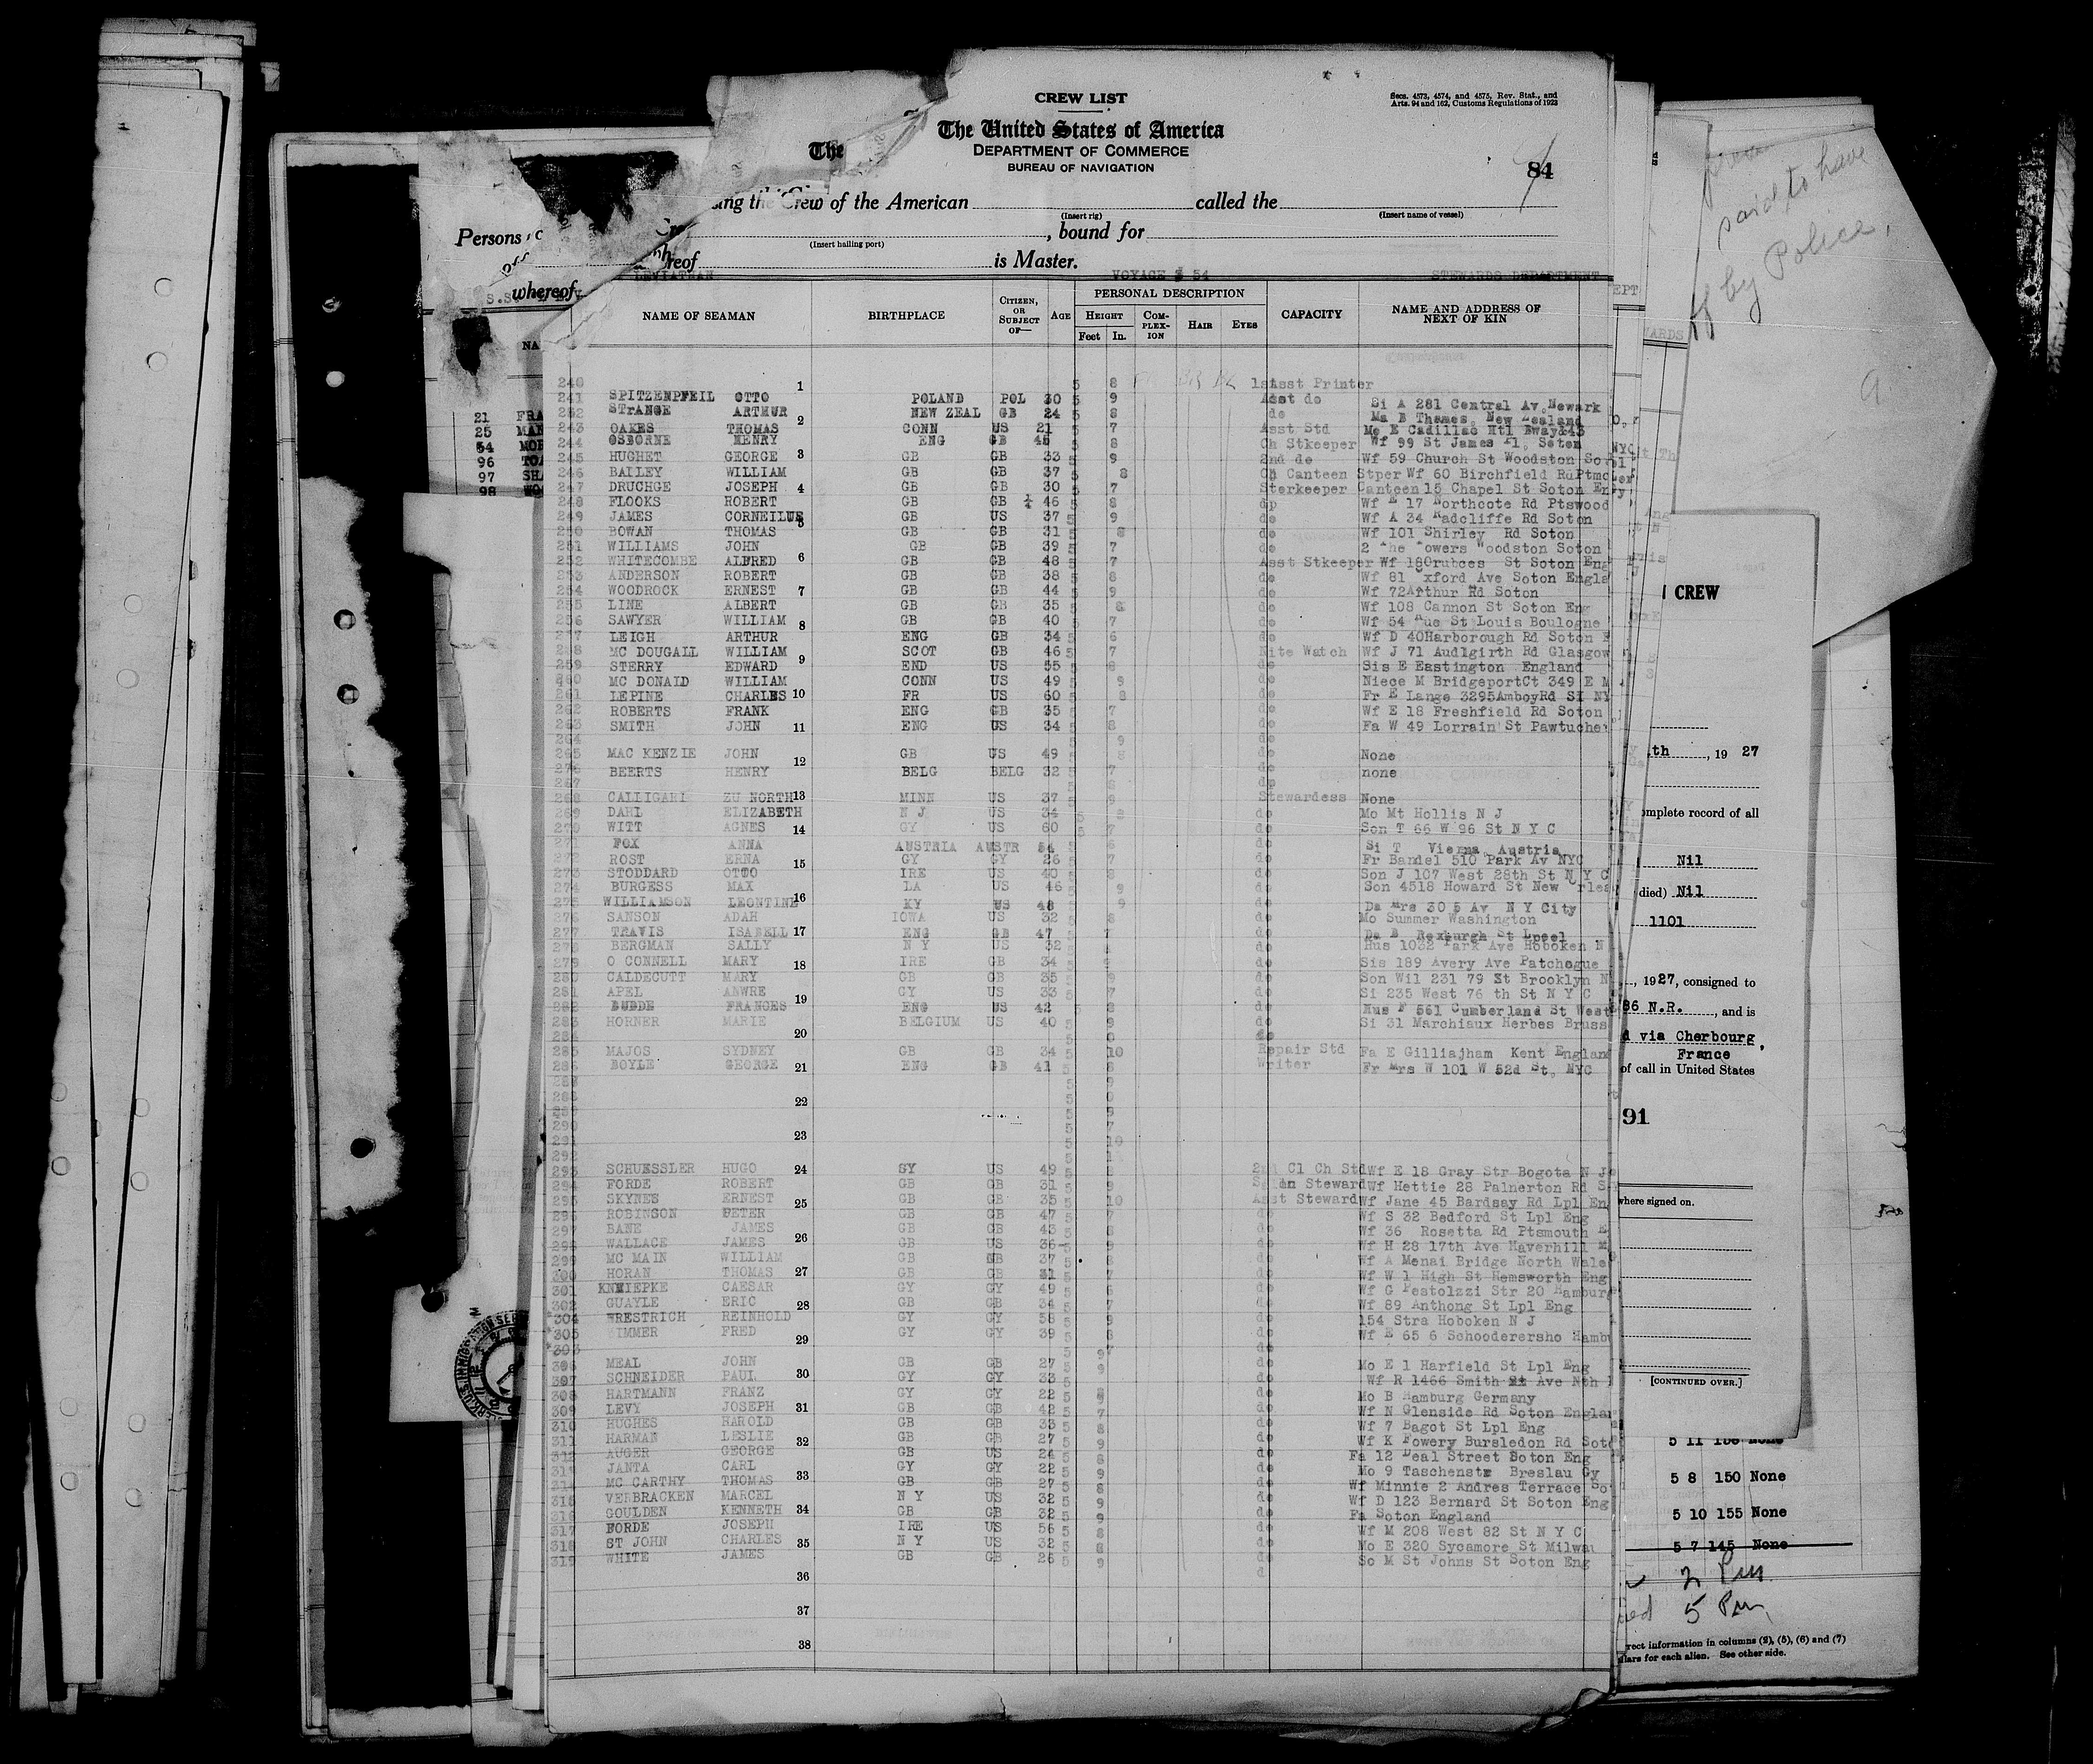 CREW LIST
Secs. 4573, 4574, and 4575, Rev. Stat., and
Arts. 94 and 162, Customs Regulations of 1923
The United States of America
The
DEPARTMENT OF COMMERCE
BUREAU OF NAVIGATION
84
the Crew of the American called the
(Insert rig) (Insert name of vessel)
Persons
, bound for
(Insert hailing port)
whereof is Master.
LEVIATHAN VOYAGE # 54 STEWARDS DEPARTMENT
NAME OF SEAMAN BIRTHPLACE CITIZEN, OR SUBJECT OF— AGE PERSONAL DESCRIPTION CAPACITY NAME AND ADDRESS OF NEXT OF KIN
HEIGHT COM-PLEX-ION HAIR EYES
Feet In.
240 1 5 8 1st Asst Printer
241 SPITZENPFEIL OTTO POLAND POL 30 5 9 Asst do Si A 281 Central Av. Newark
STrANGE ARTHUR 2 NEW ZEAL GB 24 5 8 do Ma B Thames, New Zealand
243 OAKES THOMAS CONN US 21 5 7 Asst Std Mo E Cadillac Htl Bway&43
244 OSBORNE HENRY ENG GB 45 5 8 Ch Stkeeper Wf 99 St James Pl, Soton
245 HUGHET GEORGE 3 GB GB 33 5 9 2nd do Wf 59 Church St Woodston
246 BAILEY WILLIAM GB GB 37 5 8 Ch Canteen Stper Wf 60 Birchfield Rd
247 DRUCHGE JOSEPH 4 GB GB 30 5 7 Storkeeper Canteen 15 Chapel St Soton
248 FLOOKS ROBERT GB GB 46 5 8 Wf E 17 Northcote Rd Ptswood
249 JAMES CORNEILUS GB US 37 5 9 do Wf A 34 Radcliffe Rd Soton
250 BOWAN THOMAS GB GB 31 5 8 do Wf 101 Shirley Rd Soton
251 WILLIAMS JOHN GB GB 39 5 7 do 2 The Towers Woodston Soton
252 WHITECOMBE ALFRED 6 GB GB 48 5 7 Asst Stkeeper Wf St Soton Eng
253 ANDERSON ROBERT GB GB 38 5 8 do Wf 81 Oxford Ave Soton
254 WOODROCK ERNEST 7 GB GB 44 5 9 do Wf 72 Arthur Rd Soton
255 LINE ALBERT GB GB 35 5 8 do Wf 108 Cannon St Soton Eng
256 SAWYER WILLIAM 8 GB GB 40 5 7 do Wf 54 Rue St Louis Boulogne
257 LEIGH ARTHUR ENG GB 34 5 6 do Wf D 40 Harborough Rd Soton
258 MC DOUGALL WILLIAM SCOT GB 46 5 7 Nite Watch Wf J 71 Audlgirth Rd Glasgow
259 STERRY EDWARD 9 END US 55 5 8 do Sis E Eastington England
260 MC DONAID WILLIAM CONN US 49 5 9 do Niece M BridgeportCt 349 E
261 LEPINE CHARLES 10 FR US 60 5 8 do Fr E Lange 3295 AmboyRd SI NY
262 ROBERTS FRANK ENG GB 35 5 7 do Wf E 18 Freshfield Rd Soton
263 SMITH JOHN 11 ENG US 34 5 8 do Fa W 49 Lorrain St
264 5 9 do
265 MAC KENZIE JOHN 12 GB US 49 5 8 do None
BEERTS HENRY BELG BELG 32 5 7 do none
267 5 8 do
268 CALLIGARI ZU NORTH 13 MINN US 37 5 9 Stewardess None
269 DAHL ELIZABETH N J US 34 5 8 do Mo Mt Hollis N J
270 WITT AGNES 14 GY US 60 5 7 do Son T 66 W 96 St N Y C
271 FOX ANNA AUSTRIA AUSTR 54 5 6 do Si T Vienna, Austria
272 ROST ERNA 15 GY GY 26 5 7 do Fr Bandel 510 Park Av NYC
273 STODDARD OTTO IRE US 40 5 8 do Son J 107 West 28th St N Y C
274 BURGESS MAX LA US 46 5 9 do Son 4518 Howard St New
275 WILLIAMSON LEONTINE 16 KY US 48 5 9 do Da Mrs 30 5 Av N Y City
276 SANSON ADAH IOWA US 32 5 8 do Mo Summer Washington
277 TRAVIS ISABELL 17 ENG GB 47 5 7 do Da B Roxburgh St Lpool
278 BERGMAN SALLY N Y US 32 5 do Hus 1032 Park Ave Hoboken N
279 O CONNELL MARY 18 IRE GB 34 5 do Sis 189 Avery Ave Patchogue
280 CALDECUTT MARY GB GB 35 5 9 do Son Wil 231 79 St Brooklyn N
281 APEL ANWRE 19 GY US 33 5 7 do Si 235 West 76 th St N Y C
282 BUDDE FRANCES ENG US 42 5 8 do Hus F 561 Cumberland St West
283 HORNER MARIE BELGIUM US 40 5 9 do Si 31 Marchiaux Herbes
284 20 5 do
285 MAJOS SYDNEY GB GB 34 5 10 Repair Std Fa E Gilliajham Kent England
286 BOYLE GEORGE 21 ENG GB 41 5 8 Writer Fr Mrs W 101 W 52d St. NYC
22
23
293 SCHUESSLER HUGO 24 GY US 49 5 8 2nd Cl Ch Std Wf E 18 Gray Str Bogota N J
294 FORDE ROBERT GB GB 31 5 9 Steward Wf Hettie 28 Palnerton Rd
295 SKYNES ERNEST 25 GB GB 35 5 10 Asst Steward Wf Jane 45 Bardsay Rd Lpl
296 ROBINSON PETER GB GB 47 5 7 do Wf S 32 Bedford St Lpl Eng
297 BANE JAMES GB GB 43 5 8 do Wf 36 Rosetta Rd Ptsmouth
298 WALLACE JAMES 26 GB US 36 5 9 do Wf H 28 17th Ave Haverhill
299 MC MAIN WILLIAM GB 37 5 8 do Wf A Menai Bridge North Wale
300 HORAN THOMAS 27 GB GB 31 5 7 do Wf W 1 High St Hemsworth Eng
301 KNEIEPKE CAESAR GY GY 49 5 6 do Wf G Pestolzzi Str 20 Hamburg
302 GUAYLE ERIC 28 GB GB 34 5 7 do Wf 89 Anthong St Lpl Eng
304 WRESTRICH REINHOLD GY GY 58 5 9 do 154 Stra Hoboken N J
305 ZIMMER FRED 29 GY GY 39 5 8 do Wf E 65 6 Schooderersho
306 MEAL JOHN GB GB 27 5 9 do Mo E 1 Harfield St Lpl Eng
307 SCHNEIDER PAUL 30 GY GY 33 5 do Wf R 1466 Smith Ave Nth
308 HARTMANN FRANZ GY GY 22 5 8 do Mo B Hamburg Germany
309 LEVY JOSEPH 31 GB GB 42 5 7 do Wf N Glenside Rd Soton
310 HUGHES HAROLD GB GB 33 5 8 do Wf 7 Bagot St Lpl Eng
311 HARMAN LESLIE 32 GB GB 27 5 9 do Wf K Fowery Bursledon Rd
312 AUGER GEORGE GB US 24 5 8 do Fa 12 Deal Street Soton Eng
JANTA CARL GY GY 22 5 9 do Mo 9 Taschenstr Breslau Gy
314 MC CARTHY THOMAS 33 GB GB 27 5 8 do Wf Minnie 2 Andres Terrace
315 VERBRACKEN MARCEL N Y US 32 5 9 do Wf D 123 Bernard St Soton Eng
316 GOULDEN KENNETH 34 GB GB 32 5 9 do Fa Soton England
317 FORDE JOSEPH IRE US 56 5 8 do Wf M 208 West 82 St N Y C
318 ST JOHN CHARLES 35 N Y US 32 5 8 do Mo E 320 Sycamore St
319 WHITE JAMES GB GB 26 5 9 do Sc M St Johns St Soton Eng
36
37
38
21 FRA
25 MAN
54 MOR
96 TOA
97 SHA
98 WOO
said to have
by Police,
CREW
th, 19 27
complete record of all
Nil
died) Nil
1101
, 1927, consigned to
86 N.R. , and is
via Cherbourg,
France
of call in United States
91
where signed on.
[CONTINUED OVER.]
5 11 None
5 8 150 None
5 10 155 None
5 7 145 None
5 Pm
rect information in columns (2), (5), (6) and (7)
for each alien. See other side.